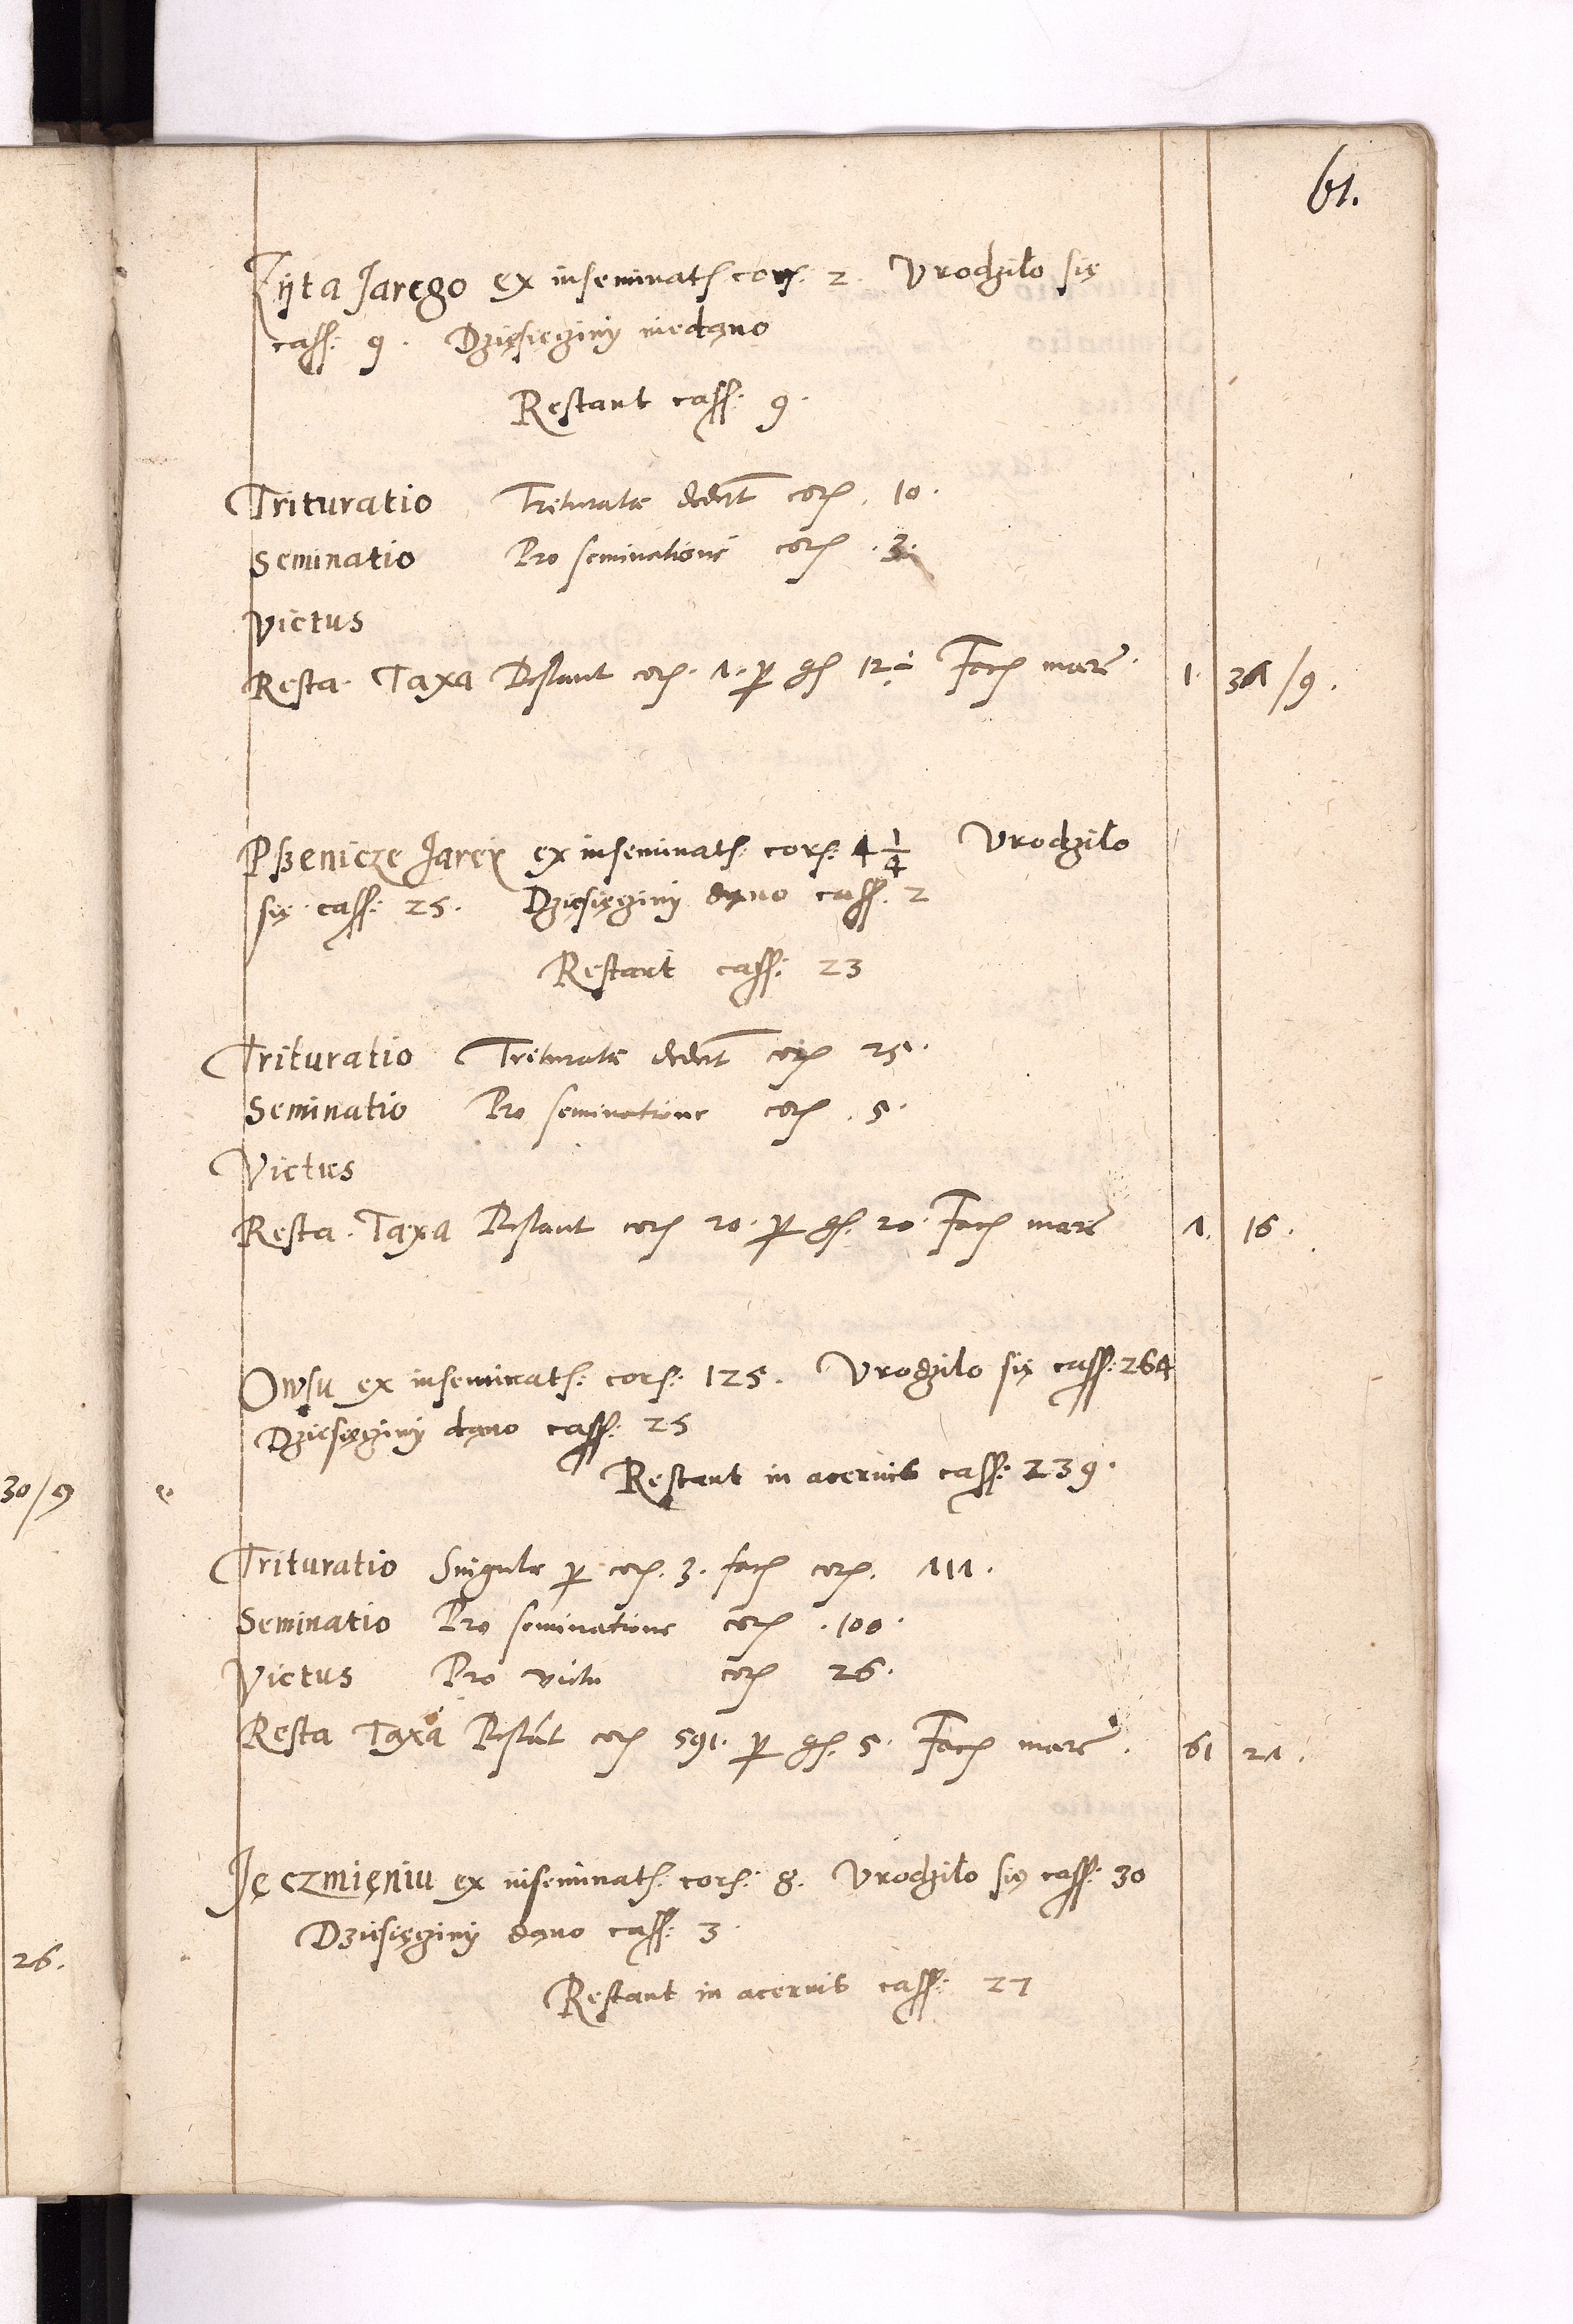 61.
Żyta Jarego ex inseminatis cor: 2. Vrodziło się
cass: 9. Dziesięciny niedano
Restant cass: 9.
Trituratio Triturate dederunt cor: 10.
Seminatio Pro seminatione cor: 3.
Victus
Resta. Taxa Restant cor: 7. per gs 12 Fac marc 1. 37/9.
Pszenicze Jarej ex inseminat: cor: 4 1/4 Vrodziło
się cass: 25. Dziesięciny dano cass: 2
Restant cass: 23
Trituratio Triturate dederunt cor 25.
Seminatio Pro seminatione cor. 5.
Victus
Resta. Taxa Restant cor 20. per gs. 20. Fac marc 16.
Owsu ex inseminat: cor: 125. Vrodziło się cass: 264
Dziesięciny dano cass: 25
Restant in acervis cass: 239.
30/9
Trituratio Singule per cor. 3. fac cor. 717.
Seminatio Pro seminatione cor. 100.
Victus Pro victu cor 26.
Resta Taxa Restant cor 591. per gs. 5. Fac marc. 61 27.
Jęczmieniu ex inseminat: cor: 8. Vrodziło się cass: 30
Dziesięciny dano cass: 3.
26.
Restant in acervis cass: 27